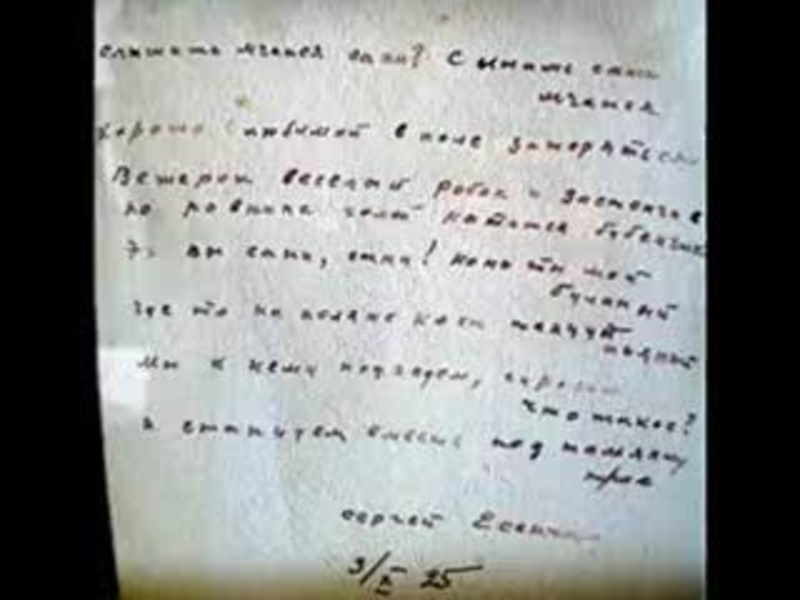 слышишь мчатся сани? Слышишь сани
мчатся
хорошо с любимой в поле затеряться
Ветерок веселый робок и застенчив
по равнине голой катится бубенчик
Эх вы сани, сани! конь ты мой
буланый
где то на поляне клен танцует
пьяный
мы к нему подъедем, спросим
что такое?
и станцуем вместе под тальянку
трое
сергей Есенин
3/X 25